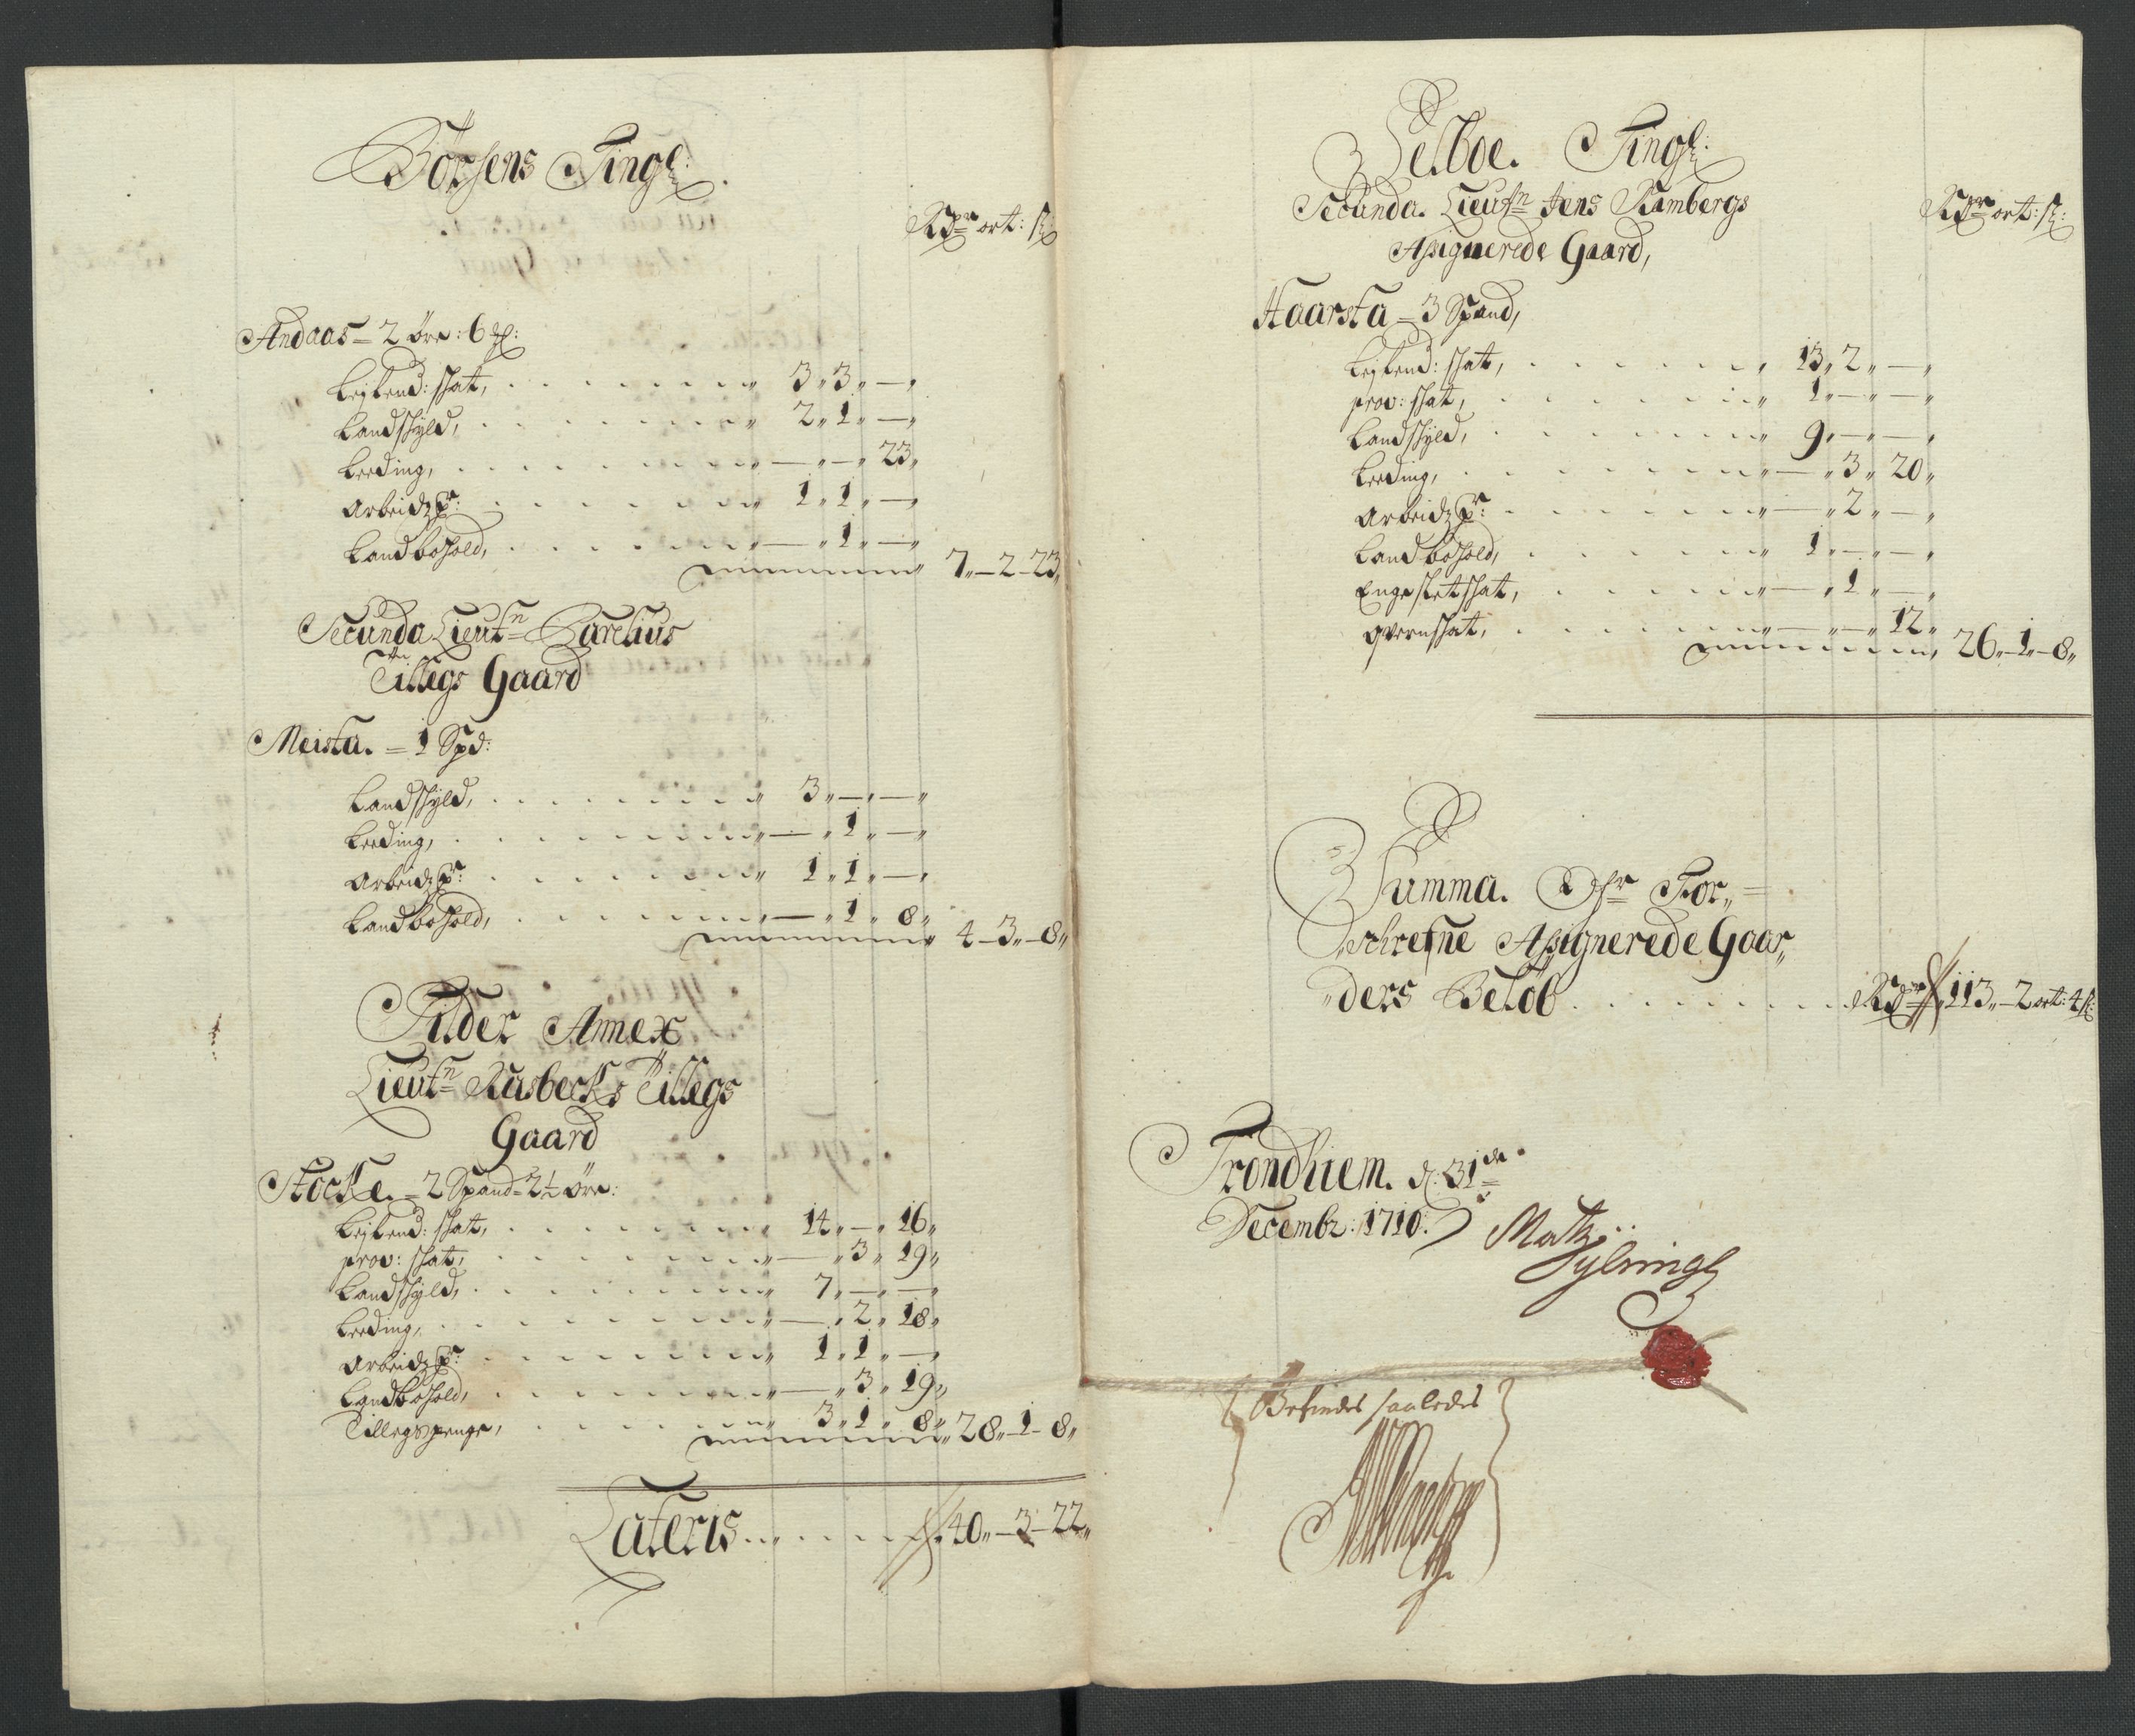 Börsens Tingl:
Rdr ort: s:
Andaas = 2 öre: 6 ml:
Leylend: skat, 3 „ 3 „ —
Landskyld, 2 „ 1 „ —
Leeding, — „ — „ 23
Arbeidz P: 1 „ 1 „ —
Landbohold, — „ 1 „ —
7 „ — 2 — 23
Secunda Lieutn Carelius
Tillegs Gaard
Meista. = 1 Spd:
Landskyld, 3 „ — „ —
Leeding, — „ 1 „ —
Arbeidz P: 1 „ 1 „ —
Landbohold, — „ 1 „ 8
4 — 3 „ — 8
Tilder Annex
Lieutn Rasbecks Tillegs
Gaard
Stocke. = 2 Spand = 2½ öre:
Leylend: skat, 14 „ — „ 16
prov: skat, — „ 3 „ 19
Landskyld, 7 „ — „ —
Leeding, — „ 2 „ 18
Arbeidz P: 1 „ 1 „ —
Landbohold, — „ 3 „ 19
Tillegspenge, 3 „ 1 „ 8
28 „ — 1 — 8
Lateris 40 „ — 3 — 22
Selboe. Tingl:
Secunda. Lieutn Jens Rambergs
Rdr ort: s:
Assignerede Gaard,
Haarsta = 3 Spand,
Leylend: skat, 13 „ 2 „ —
prov: skat, 1 „ — „ —
Landskyld, 9 „ — „ —
Leeding, — „ 3 „ 20
Arbeidz P: — „ 2 „ —
Landbohold, 1 „ — „ —
Engesletskat, — „ 1 „ —
Qvernskat, — „ — „ 12
26 „ — 1 „ — 8
Summa. Ofr For„
schrefne Assignerede Gaar„
„ders Belöb Rdr 113 „ — 2 ort: 4 s:
Trondhiem. d: 31de
Decembr: 1710.
Befindes saaledes